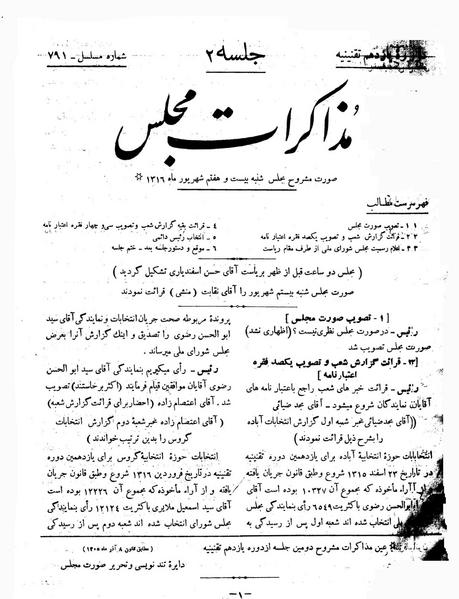 دوره یازدهم تقنینیه
جلسه ۲
شماره مسلسل - ۷۹۱
مذاکرات مجلس
صورت مشروح مجلس شنبه بیست و هفتم شهریور ماه ۱۳۱۶ ☆
فهرست مطالب
۱ - تصویب صورت مجلس
۲ - قرائت گزارش شعب و تصویب یکصد فقره اعتبار نامه
۳ - اعلام رسمیت مجلس شورای ملی از طرف مقام ریاست
۴ - قرائت بقیه گزارش شعب و تصویب سی و چهار فقره اعتبار نامه
۵ - انتخاب رئیس دائمی
۶ - موقع و دستور جلسه بعد - ختم جلسه
( مجلس دو ساعت قبل از ظهر بریاست آقای حسن اسفندیاری تشکیل گردید )
صورت مجلس شنبه بیستم شهریور را آقای نقابت ( منشی ) قرائت نمودند
[ ۱ - تصویب صورت مجلس ]
رئیس - در صورت مجلس نظری نیست؟ (اظهاری نشد)
صورت مجلس تصویب شد
[۲ - قرائت گزارش شعب و تصویب یکصد فقره
اعتبار نامه ]
رئیس - قرائت خبر های شعب راجع باعتبار نامه های
آقایان نمایندگان شروع میشود - آقای مجد ضیائی
(آقای مجد ضیائی خبر شعبه اول گزارش انتخابات آباده
را بشرح ذیل قرائت نمودند)
انتخابات حوزهٔ انتخابیهٔ آباده برای یازدهمین دوره تقنینیه
در تاریخ ۲۳ اسفند ۱۳۱۵ شروع و طبق قانون جریان یافته
از آراء مأخوذه که مجموع آن ۱۰۳۲۷ بوده است آقای
ابوالحسن رضوی باکثریت ۶۵۴۹ رأی بنمایندگی
ملی انتخاب شده اند شعبه اول پس از رسیدگی به
پروندهٔ مربوطه صحت جریان انتخابات و نمایندگی آقای سید
ابوالحسن رضوی را تصدیق و اینک گزارش آنرا بعرض
مجلس شورای ملی میرساند .
رئیس - رأی میگیریم بنمایندگی آقای سید ابوالحسن
رضوی آقایان موافقین قیام فرمایند (اکثر برخاستند) تصویب
شد . آقای اعتصام زاده (احضار برای قرائت گزارش شعبه)
(آقای اعتصام زاده خبر شعبهٔ دوم گزارش انتخابات
گروس را بدین ترتیب خواندند)
انتخابات حوزهٔ انتخابیهٔ گروس برای یازدهمین دوره
تقنینیه در تاریخ فروردین ۱۳۱۶ شروع و طبق قانون جریان
یافته و از آراء مأخوذه که مجموع آن ۱۲۲۲۶ بوده است
آقای سید اسمعیل ملایری باکثریت ۱۲۱۲۴ رأی بنمایندگی
مجلس شورای انتخاب شده اند شعبه دوم پس از رسیدگی
عین مذاکرات مشروح دومین جلسه از دوره یازدهم تقنینیه
(مطابق قانون ۸ آذر ماه ۱۳۰۵)
دایرهٔ تند نویسی و تحریر صورت مجلس
- ۱ -